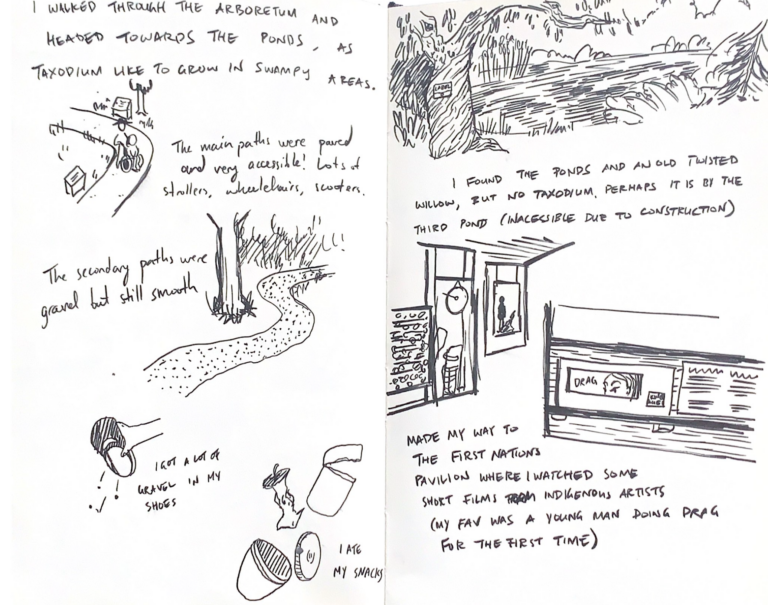 I WALKED THROUGH THE ARBORETUM AND
HEADED TOWARDS THE PONDS, AS
TAXODIUM LIKE TO GROW IN SWAMPY AREAS.
The main paths were paved
and very accessible! Lots of
strollers, wheelchairs, scooters.
The secondary paths were
gravel but still smooth
I GOT A LOT OF
GRAVEL IN MY
SHOES
I ATE
MY SNACKS
LABEL
I FOUND THE PONDS AND AN OLD TWISTED
WILLOW, BUT NO TAXODIUM. PERHAPS IT IS BY THE
THIRD POND (INACESSIBLE DUE TO CONSTRUCTION)
DRAG
MADE MY WAY TO
THE FIRST NATIONS
PAVILION WHERE I WATCHED SOME
SHORT FILMS FROM INDIGENOUS ARTISTS
(MY FAV WAS A YOUNG MAN DOING DRAG
FOR THE FIRST TIME)